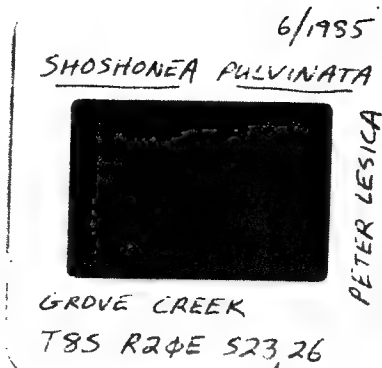 6/1985
SHOSHONEA PULVINATA
PETER LESICA
GROVE CREEK
T8S R2φE S23,26